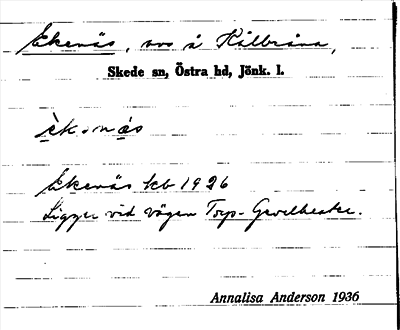 Ekenäs, avs å Källbråna,
Skede sn, Östra hd, Jönk. l.
èkənäs
Ekenäs kb 1926
Ligger vid vägen Torp-
Annalisa Anderson 1936